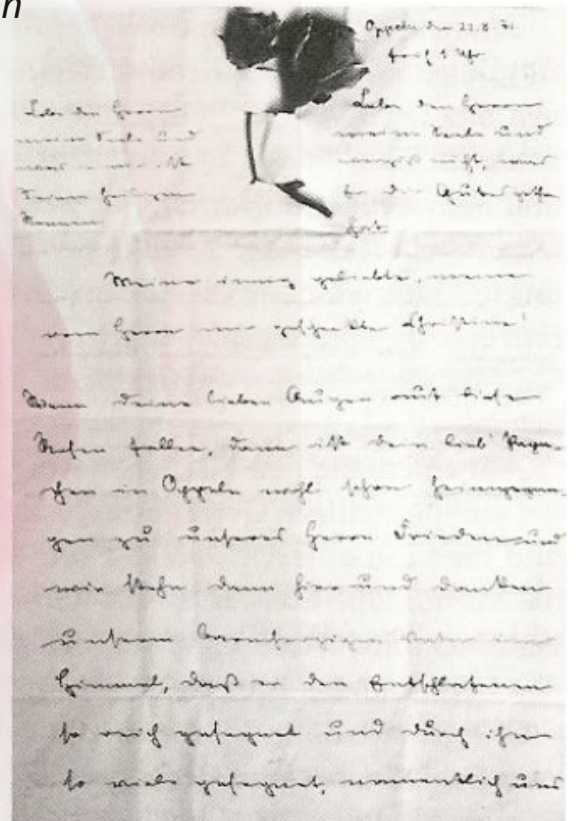 n
Oppeln den 22.8.71.
früh 1 Uhr.
Lobe den Herrn
meine Seele und
was in mir ist
Seinen heiligen
Namen
Lobe den Herrn
meine Seele und
vergiß nicht, was
Er dir Gutes gethan
hat.
Meine innig geliebte, meine
vom Herrn mir geschenkte Christine!
Wenn Deine lieben Augen auf diese
Rosen fallen, dann ist dein lieb Papa-
chen in Oppeln wohl schon heimgegan-
gen zu unseres Herrn Frieden und
wir stehn dann hier und danken
unserem barmherzigen Vater im
Himmel, daß er den Entschlafenen
so reich gesegnet und durch ihn
so viele gesegnet, namentlich uns